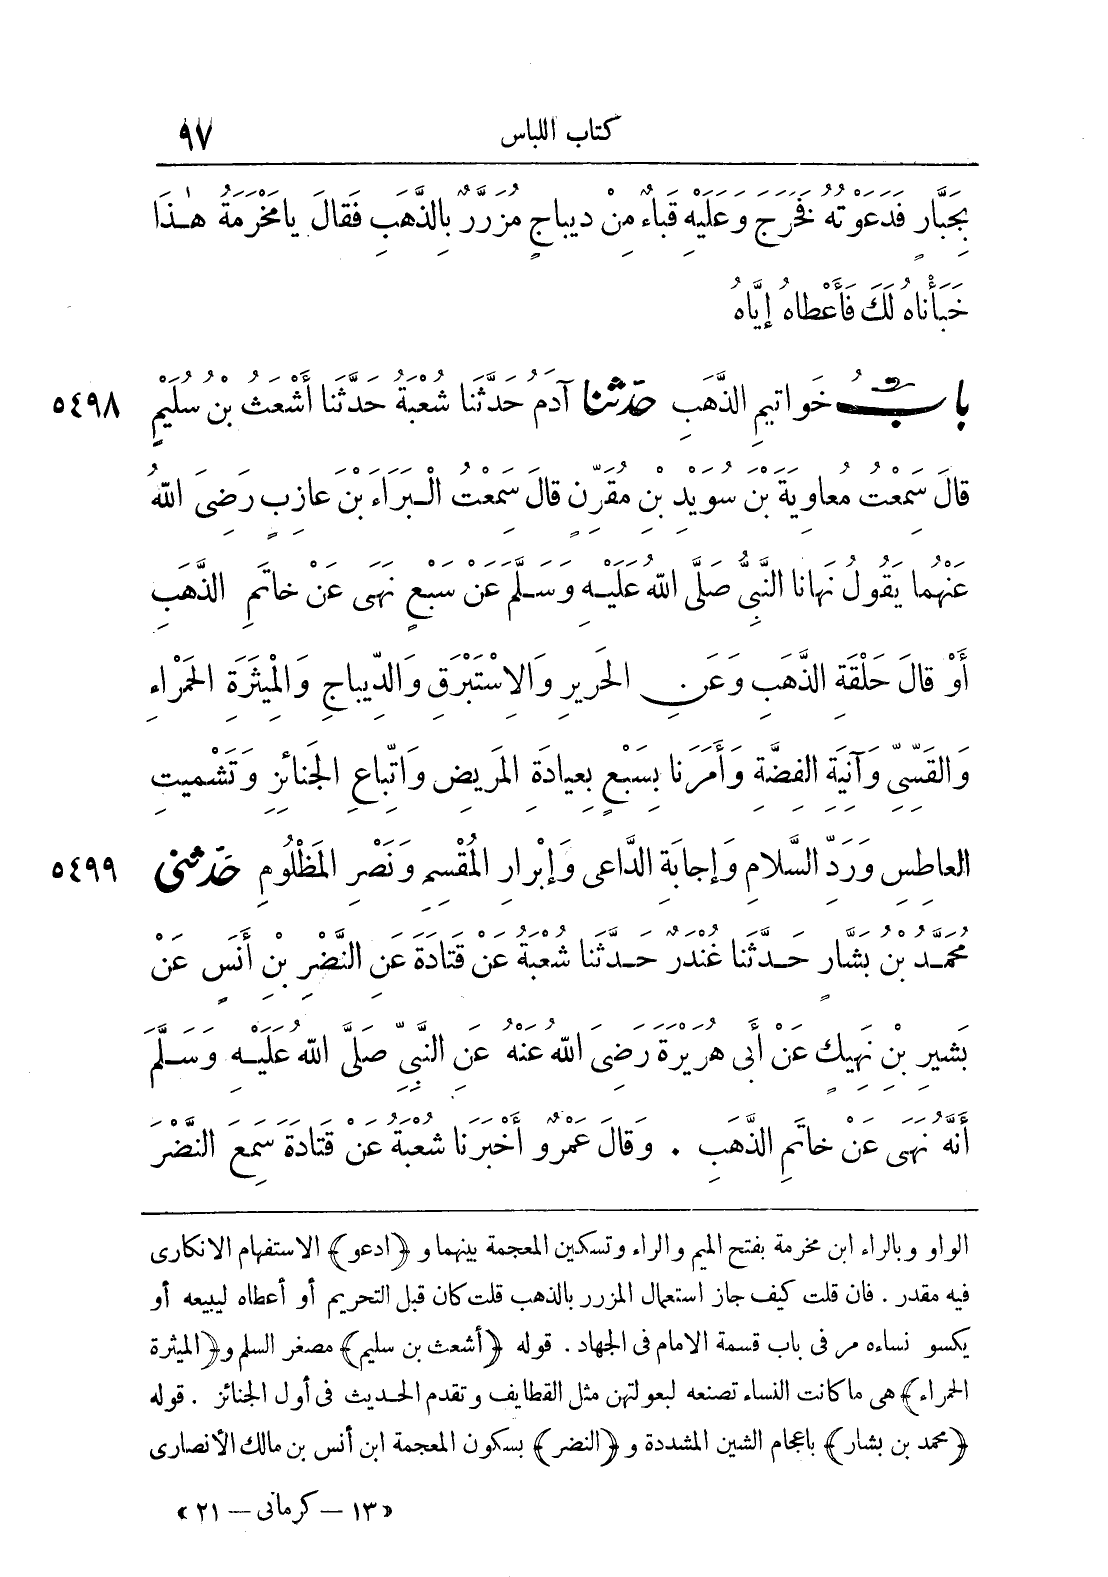 كتاب اللباس ٩٧
بِجَبَّارٍ فَدَعَوْتُهُ فَخَرَجَ وَعَلَيْهِ قَبَاءٌ مِنْ دِيبَاجٍ مُزَرَّرٌ بِالذَّهَبِ فَقَالَ يَامَخْرَمَةُ هٰذَا
خَبَأْنَاهُ لَكَ فَأَعْطَاهُ إِيَّاهُ
بابُ خَوَاتِيمِ الذَّهَبِ حدثنا آدَمُ حَدَّثَنَا شُعْبَةُ حَدَّثَنَا أَشْعَثُ بْنُ سُلَيْمٍ ٥٤٩٨
قَالَ سَمِعْتُ مُعَاوِيَةَ بْنَ سُوَيْدِ بْنِ مُقَرِّنٍ قَالَ سَمِعْتُ الْبَرَاءَ بْنَ عَازِبٍ رَضِىَ اللهُ
عَنْهُمَا يَقُولُ نَهَانَا النَّبِىُّ صَلَّى اللهُ عَلَيْهِ وَسَلَّمَ عَنْ سَبْعٍ نَهَى عَنْ خَاتَمِ الذَّهَبِ
أَوْ قَالَ حَلْقَةِ الذَّهَبِ وَعَنِ الْحَرِيرِ وَالْاِسْتَبْرَقِ وَالدِّيبَاجِ وَالْمِيثَرَةِ الْحَمْرَاءِ
وَالْقَسِّىِّ وَآنِيَةِ الْفِضَّةِ وَأَمَرَنَا بِسَبْعٍ بِعِيَادَةِ الْمَرِيضِ وَاتِّبَاعِ الْجَنَائِزِ وَتَشْمِيتِ
الْعَاطِسِ وَرَدِّ السَّلَامِ وَإِجَابَةِ الدَّاعِى وَإِبْرَارِ الْمُقْسِمِ وَنَصْرِ الْمَظْلُومِ حَدَّثَنِى ٥٤٩٩
مُحَمَّدُ بْنُ بَشَّارٍ حَدَّثَنَا غُنْدَرٌ حَدَّثَنَا شُعْبَةُ عَنْ قَتَادَةَ عَنِ النَّضْرِ بْنِ أَنَسٍ عَنْ
بَشِيرِ بْنِ نَهِيكٍ عَنْ أَبِى هُرَيْرَةَ رَضِىَ اللهُ عَنْهُ عَنِ النَّبِىِّ صَلَّى اللهُ عَلَيْهِ وَسَلَّمَ
أَنَّهُ نَهَى عَنْ خَاتَمِ الذَّهَبِ . وَقَالَ عَمْرٌو أَخْبَرَنَا شُعْبَةُ عَنْ قَتَادَةَ سَمِعَ النَّضْرَ
الواو وبالراء ابن مخرمة بفتح الميم والراء وتسكين المعجمة بينهما و ﴿ادعو﴾ الاستفهام الانكارى
فيه مقدر . فان قلت كيف جاز استعمال المزرر بالذهب قلت كان قبل التحريم أو أعطاه ليبيعه أو
يكسو نساءه مر فى باب قسمة الامام فى الجهاد . قوله ﴿أشعث بن سليم﴾ مصغر السلم و﴿الميثرة
الحمراء﴾ هى ماكانت النساء تصنعه لبعولتهن مثل القطايف وتقدم الحديث فى أول الجنائز . قوله
﴿محمد بن بشار﴾ باعجام الشين المشددة و﴿النضر﴾ بسكون المعجمة ابن أنس بن مالك الأنصارى
«١٣ – كرمانى – ٢١»